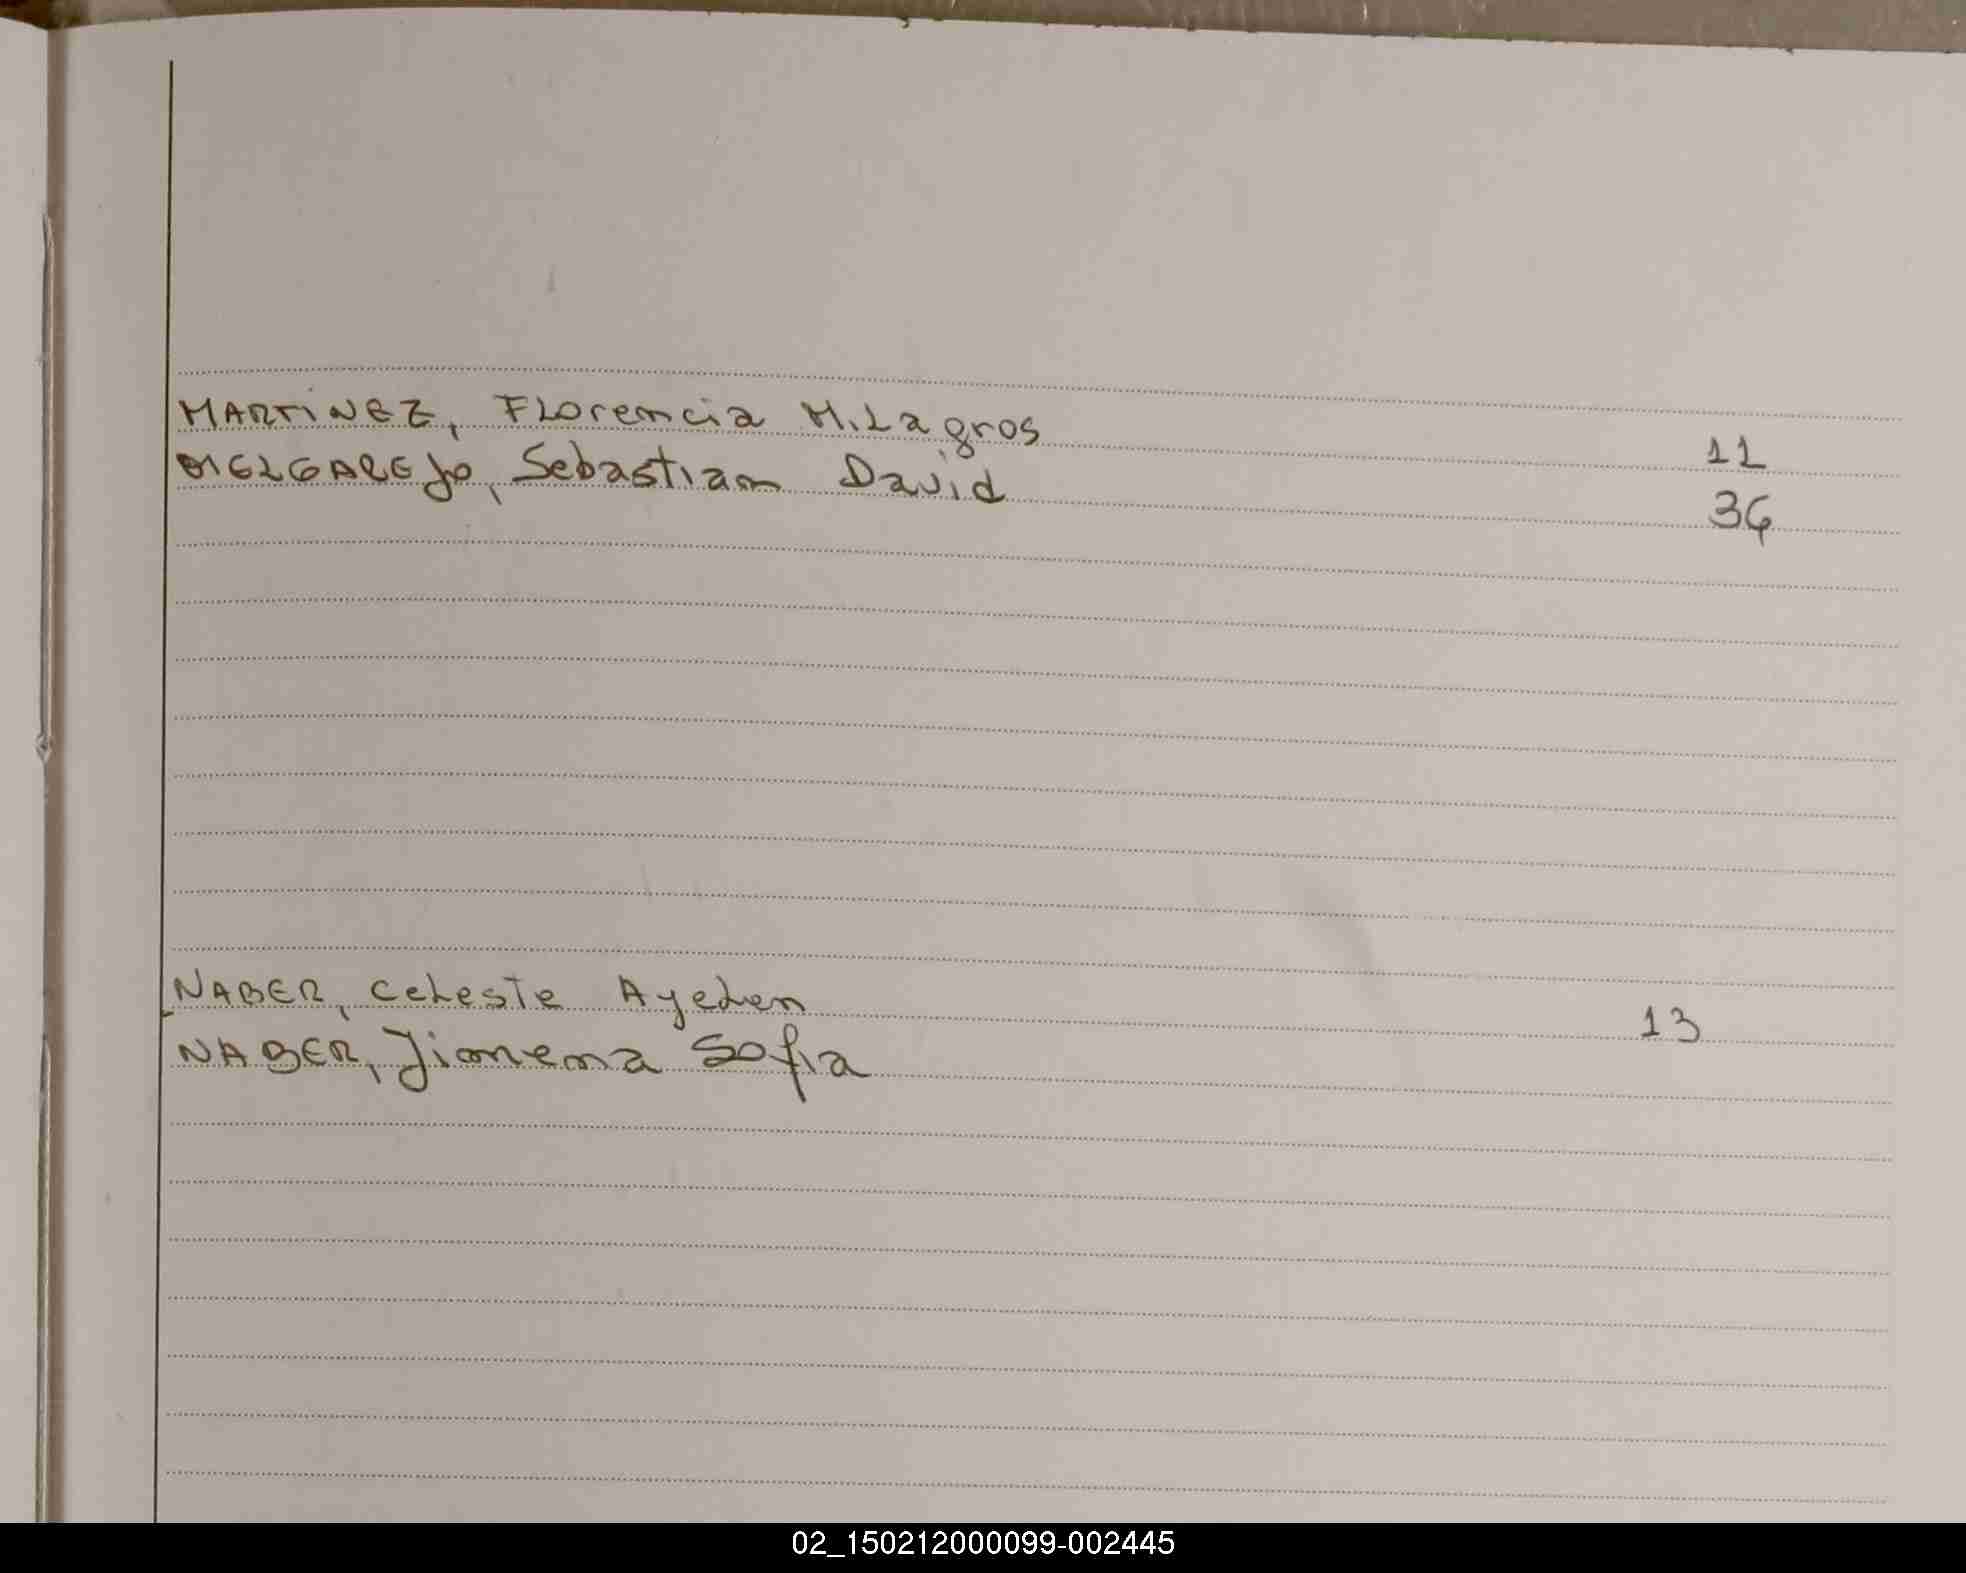 MARTINEZ, Florencia Milagros 11
MELGAREJO, Sebastian David 36
NABER, Celeste Ayelen 13
NABER, Jimena Sofia
02_150212000099-002445